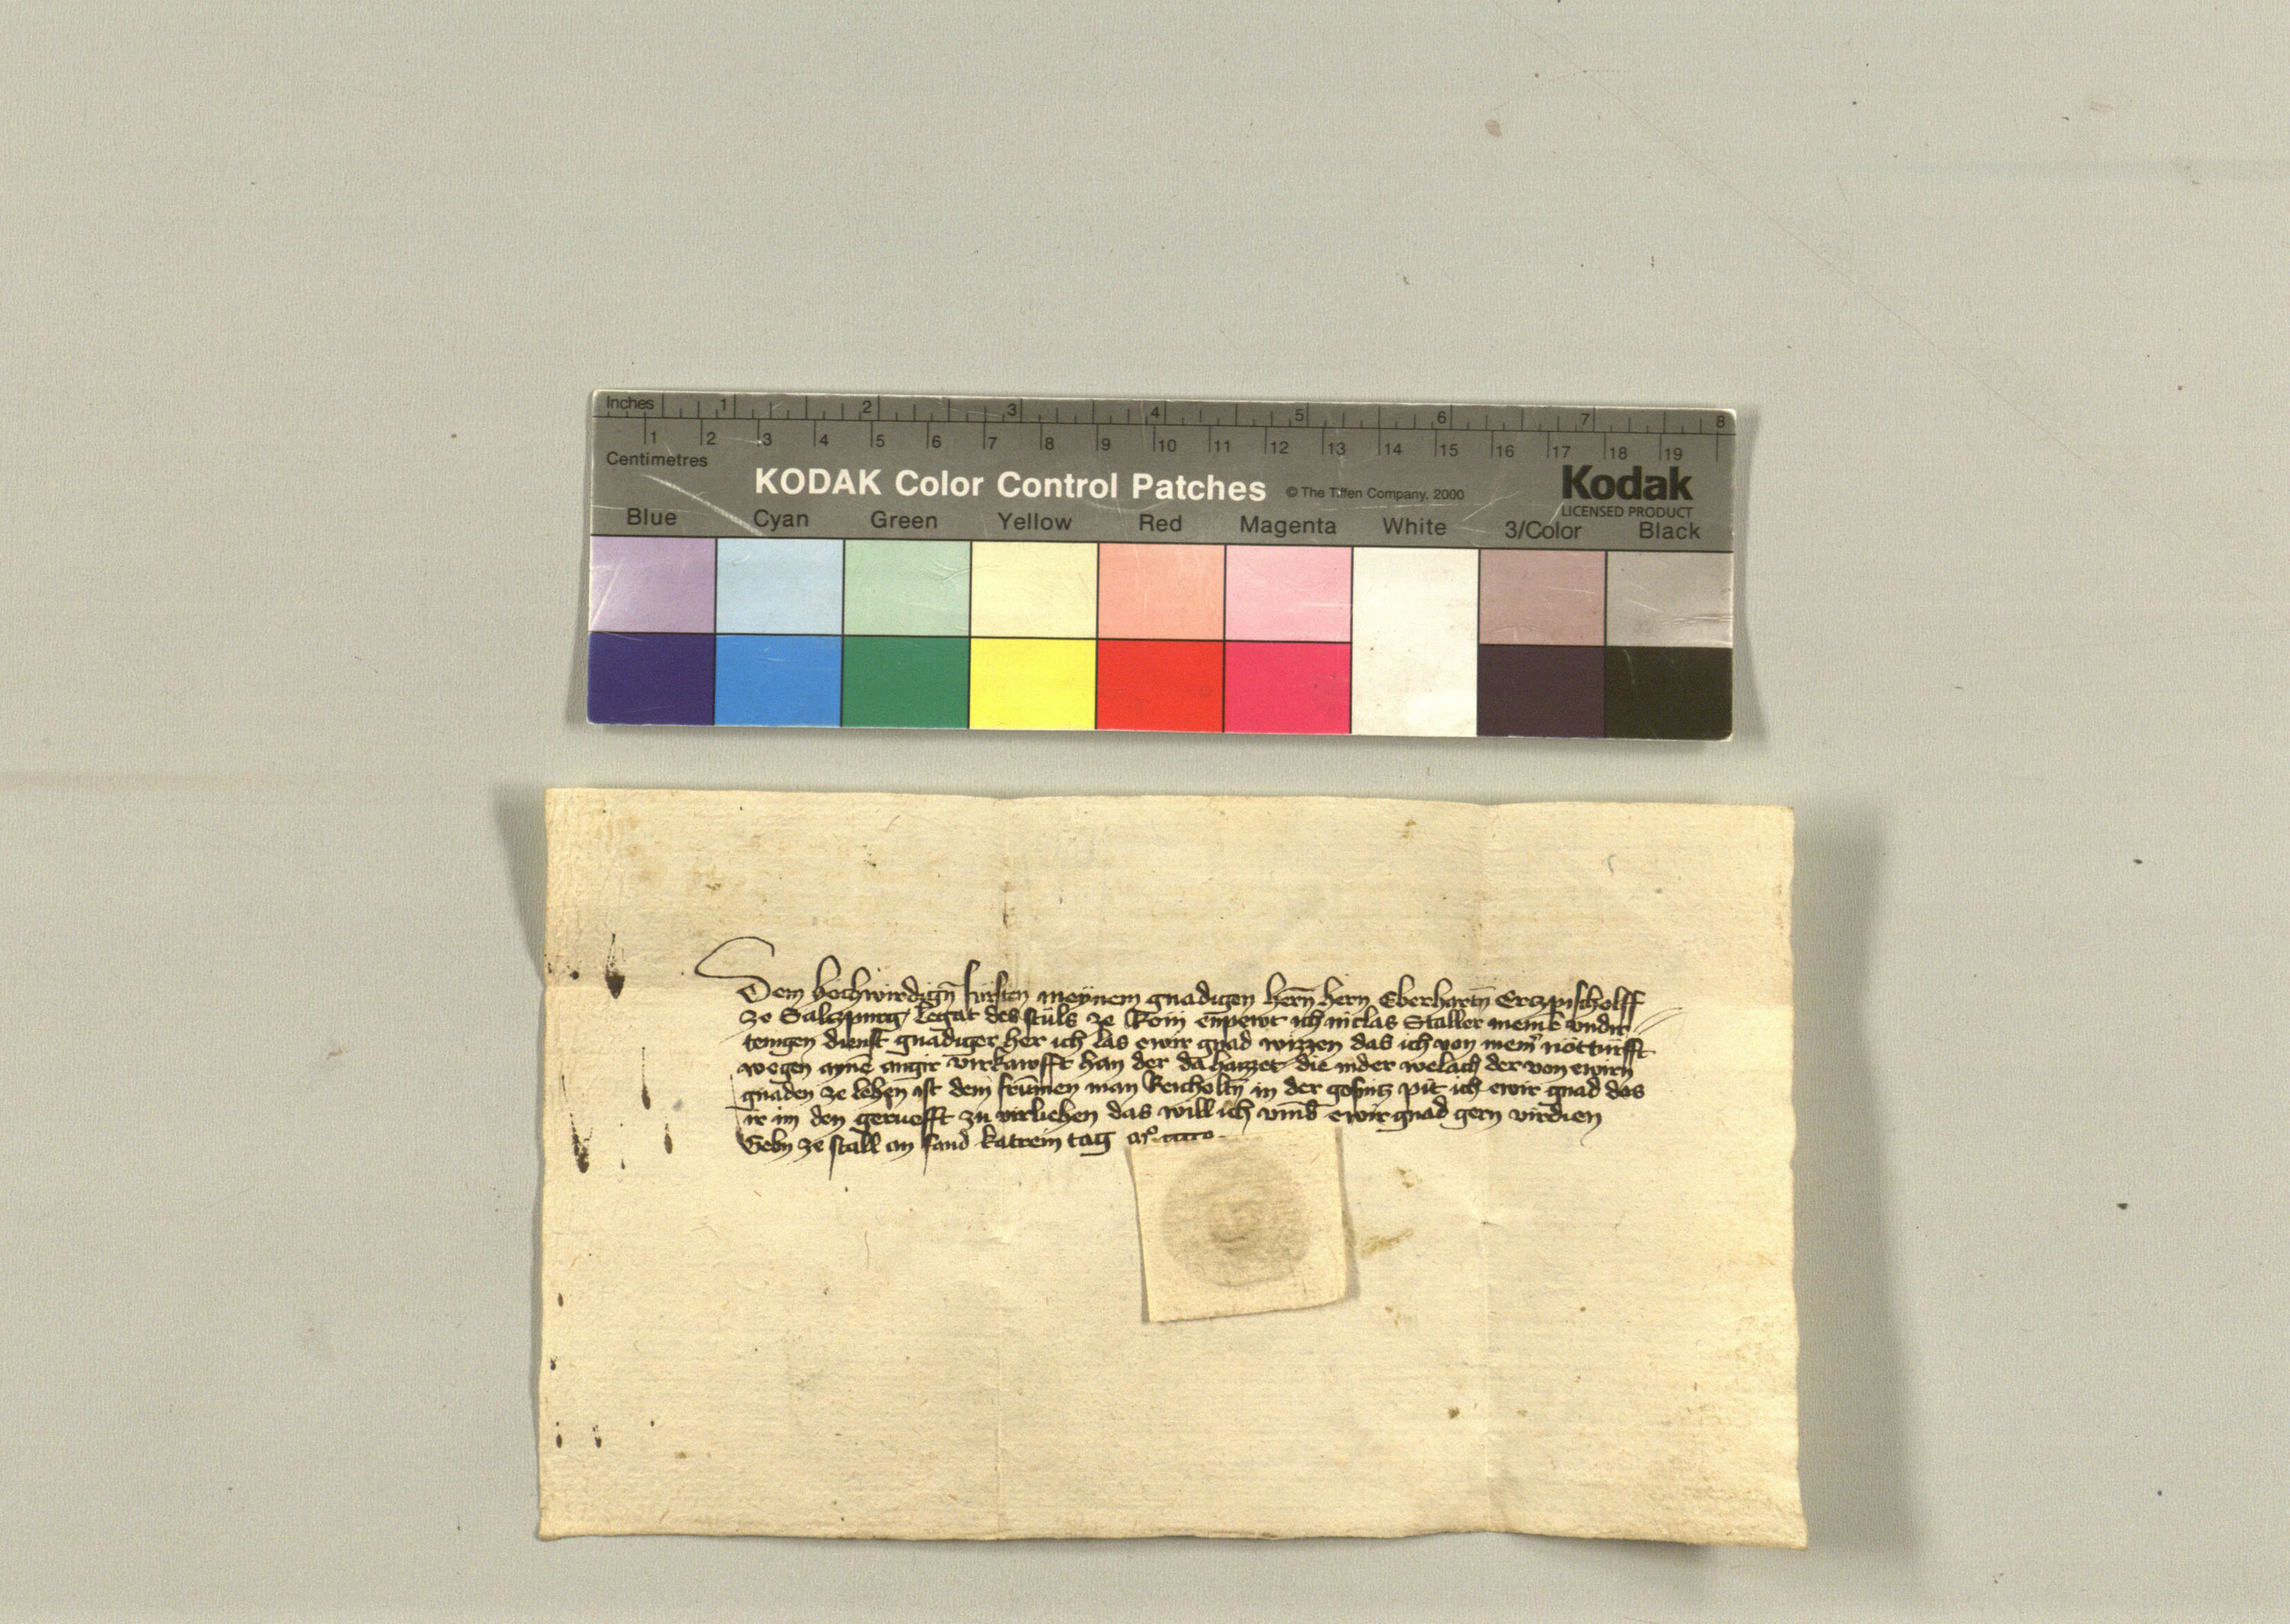 Inches 1 2 3 4 5 6 7 8
1 2 3 4 5 6 7 8 9 10 11 12 13 14 15 16 17 18 19
Centimetres
KODAK Color Control Patches © The Tiffen Company, 2000 Kodak
LICENSED PRODUCT
Blue Cyan Green Yellow Red Magenta White 3/Color Black
Dem hochwirdign̄ fürsten meynem gnadigen hern̄ hern Eberhartn̄ Erczpischolff
ze Salczpurg Legat des stüls ze Rom enpewt ich niclas Staller meinē vndir
tenigen dienst gnadiger her ich las ewir gnad wizzen das ich von mein notturfft
wegen aynē angir virkawfft han der da haizzet die inder welach der von ewirn
gnaden ze lehen ist dem frumen man Reicholtn̄ in der gosnitz pit ich ewir gnad das
ir im den geruefft zu virliehen das will ich vmb ewir gnad gern virdien
Gebn ze stall an sand katrein tag